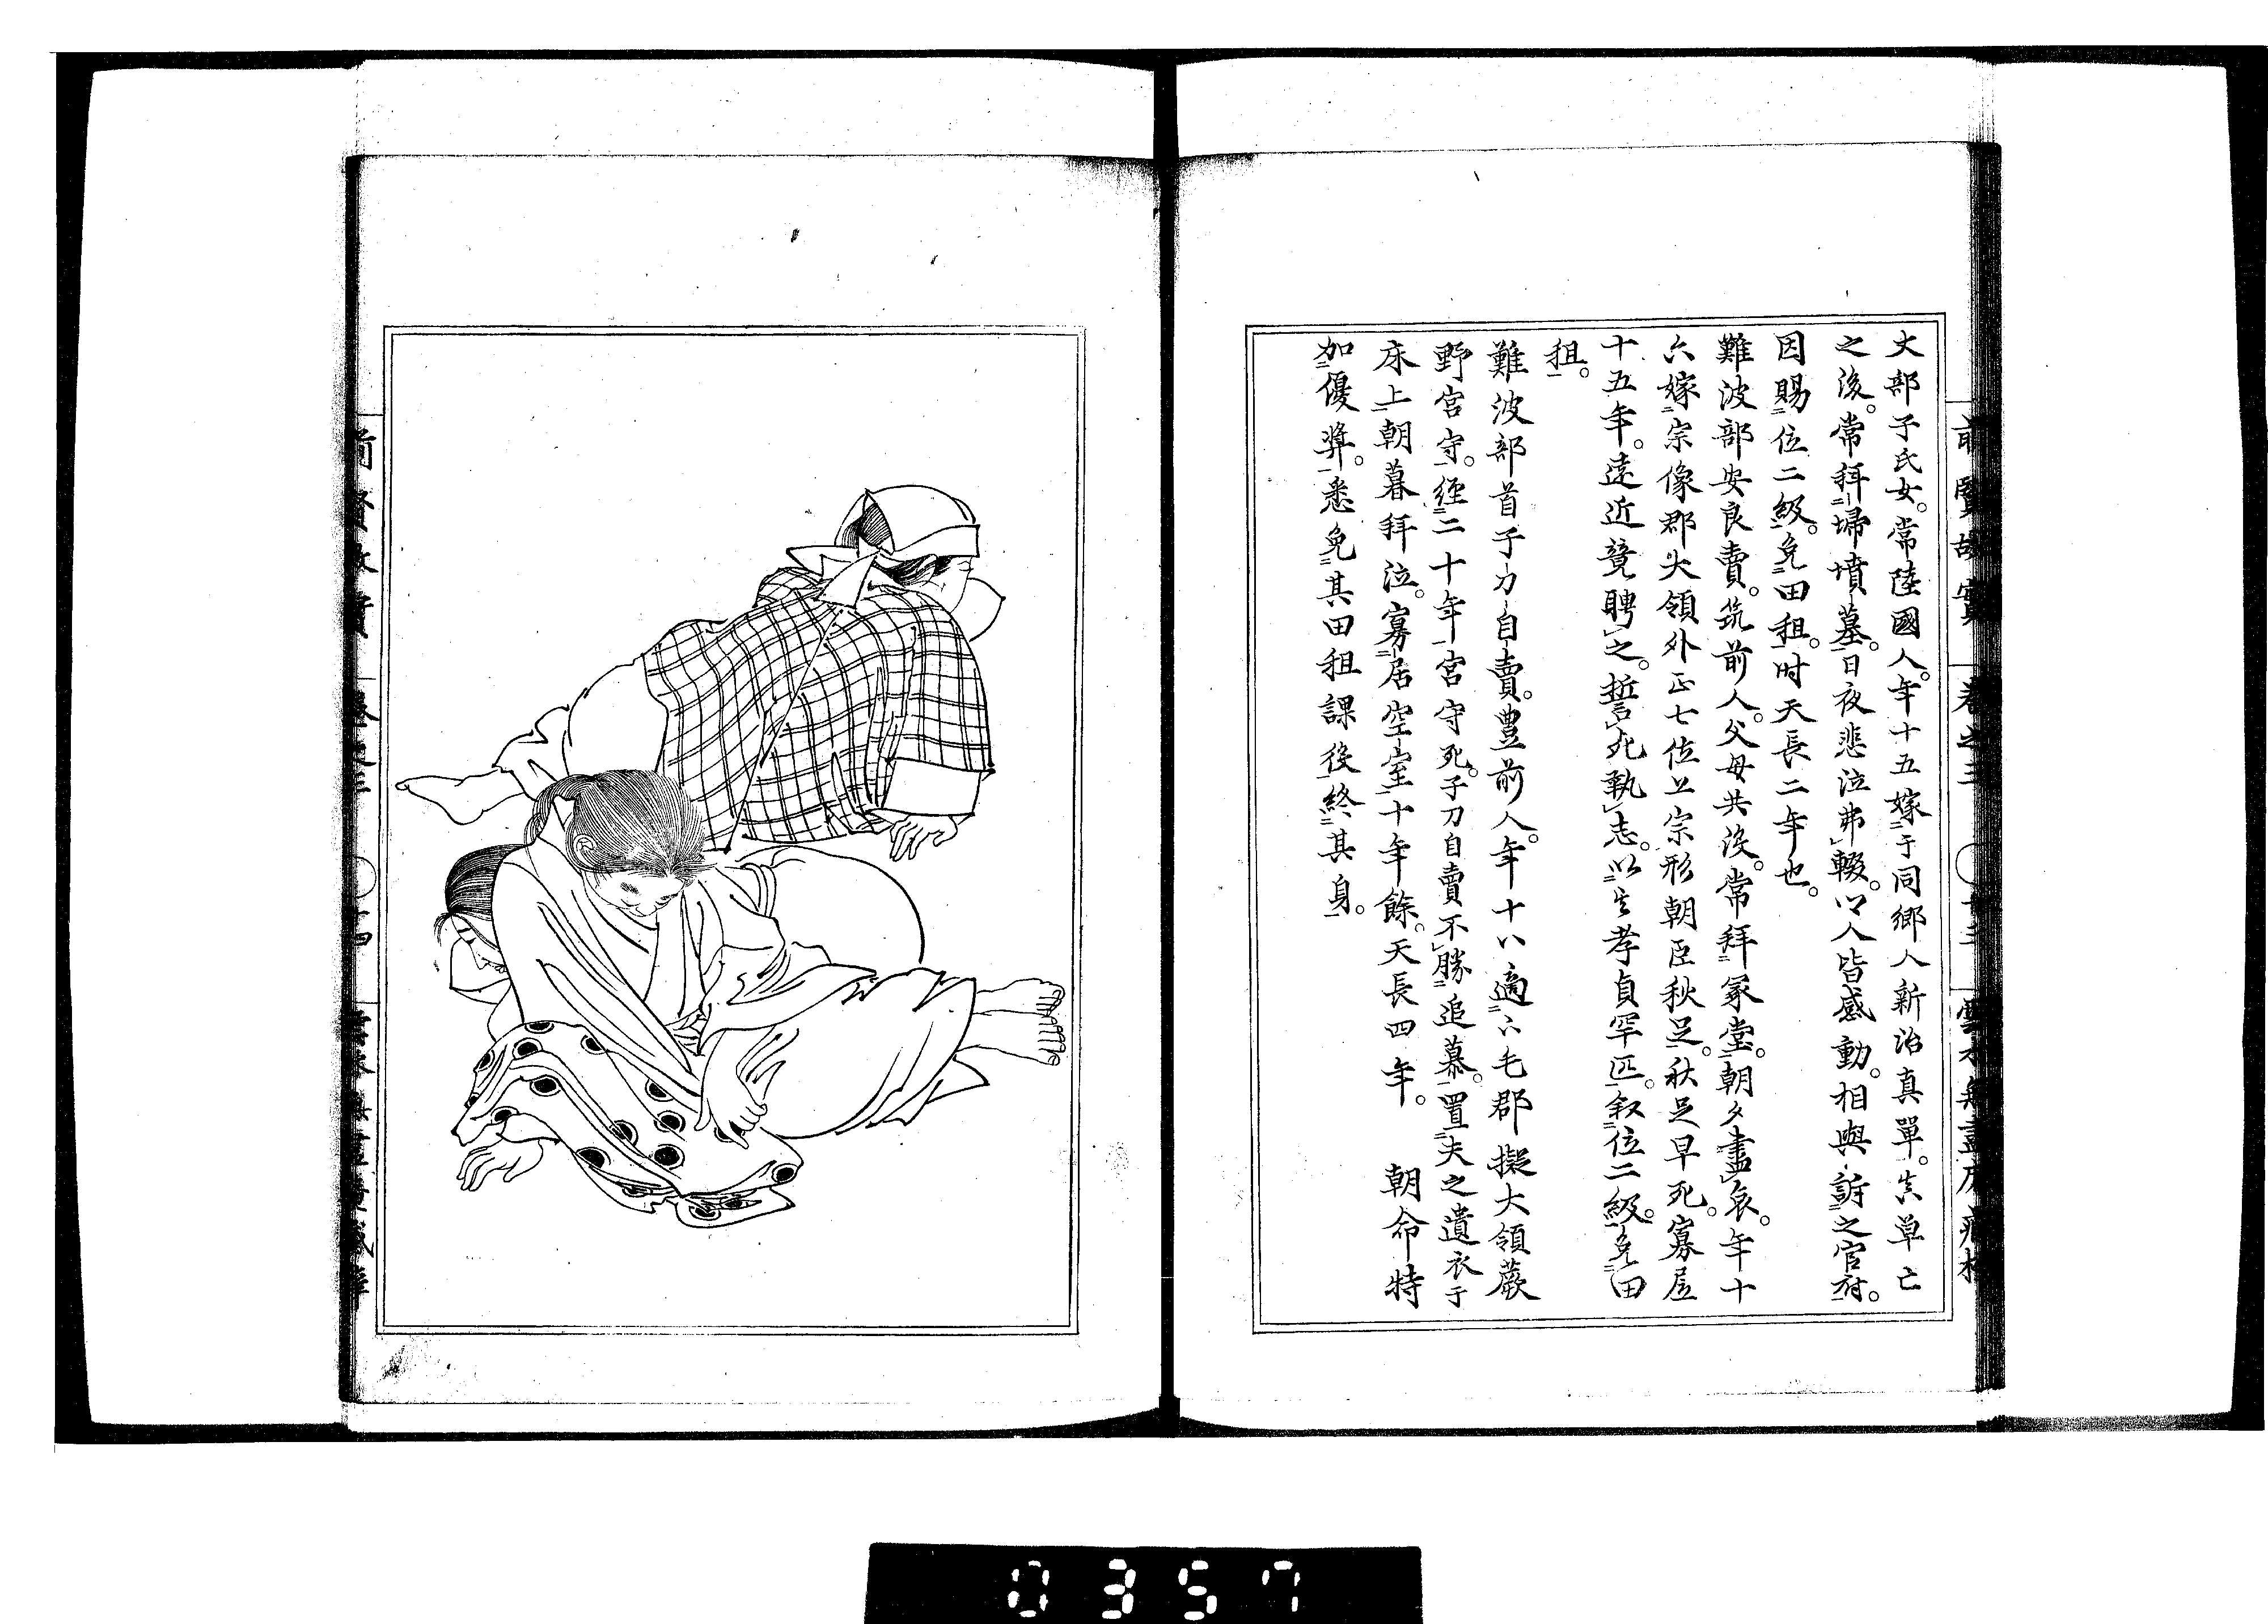 前賢故實 卷之三 十三
丈部子氏女。常陸國人。年十五嫁于同鄉人新治真單。真單亡
之後。常拜掃墳墓。日夜悲泣弗輟。以人皆感動。相與訴之官府。
因賜位二級。免田租。时天長二年也。
難波部安良賣。筑前人。父母共沒。常拜冢堂。朝夕盡哀。年十
六嫁宗像郡大領外正七位上宗形朝臣秋足。秋足早死。寡居
十五年。遠近競聘之。誓死執志。以至孝貞罕匹。叙位二級。免田
租。
難波部首子刀自賣。豊前人。年十八適下毛郡擬大領蕨
野宮守。經二十年宮守死。子刀自賣不勝追慕。置夫之遺衣于
床上朝暮拜泣。寡居空室十年餘。天長四年。 朝命特
加優奨。悉免其田租課役終其身。
0357